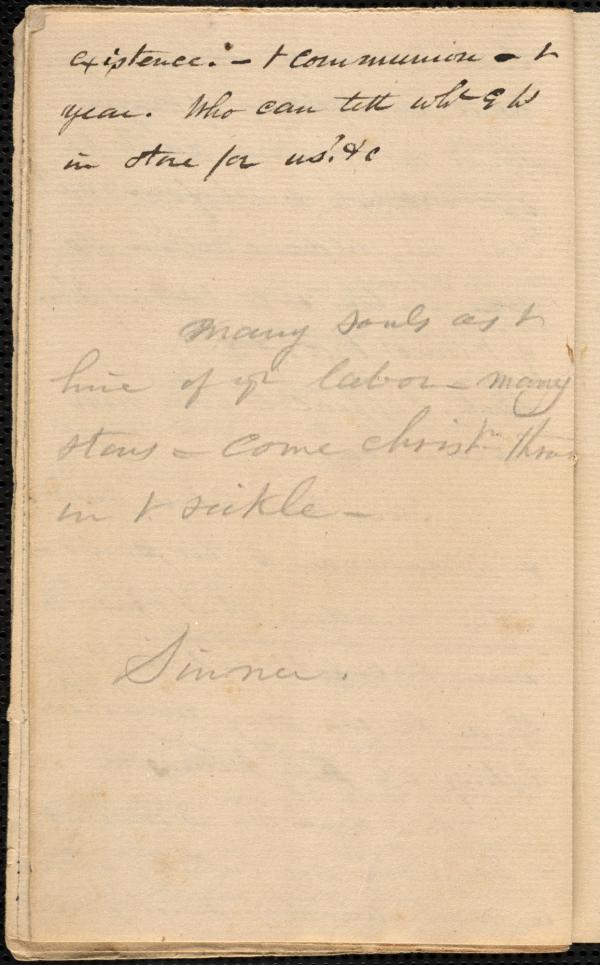 existence. - t communion - t
year. Who can tell wht G hs
in store for us? &c
Many souls as t
hire of yr labor - many
stars - come christn thrust
in t sickle -
Sinner.